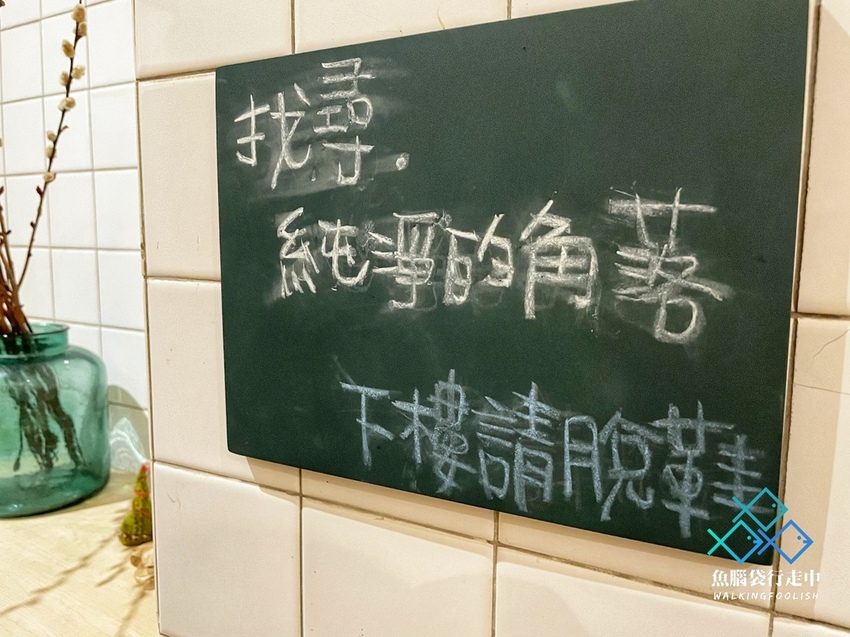 找尋.
純淨的角落
下樓請脫鞋
魚腦袋行走中
WALKINGFOOLISH